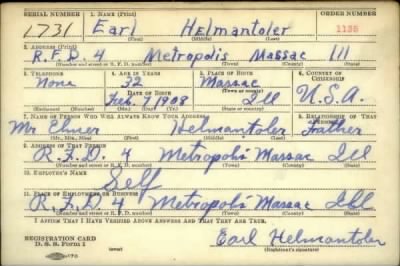 SERIAL NUMBER 1. NAME (Print) ORDER NUMBER
1731 Earl Helmantoler 1135
(First) (Middle) (Last)
2. ADDRESS (Print)
R.F.D. 4 Metropolis Massac Ill
(Number and street or R. F. D. number) (Town) (County) (State)
3. TELEPHONE 4. AGE IN YEARS 5. PLACE OF BIRTH 6. COUNTRY OF CITIZENSHIP
None 32 Massac
DATE OF BIRTH (Town or county)
Feb. 1908 Ill U.S.A.
(Mo.) (Day) (Yr.) (State or country)
7. NAME OF PERSON WHO WILL ALWAYS KNOW YOUR ADDRESS 8. RELATIONSHIP OF THAT PERSON
Mr Elmer Helmantoler Father
(Mr., Mrs., Miss) (First) (Middle) (Last)
9. ADDRESS OF THAT PERSON
R.F.D. 4 Metropolis Massac Ill
(Number and street or R. F. D. number) (Town) (County) (State)
10. EMPLOYER'S NAME
Self
11. PLACE OF EMPLOYMENT OR BUSINESS
R.F.D. 4 Metropolis Massac Ill
(Number and street or R. F. D. number) (Town) (County) (State)
I AFFIRM THAT I HAVE VERIFIED ABOVE ANSWERS AND THAT THEY ARE TRUE.
REGISTRATION CARD
D. S. S. Form 1
(over)
Earl Helmantoler
(Registrant's signature)